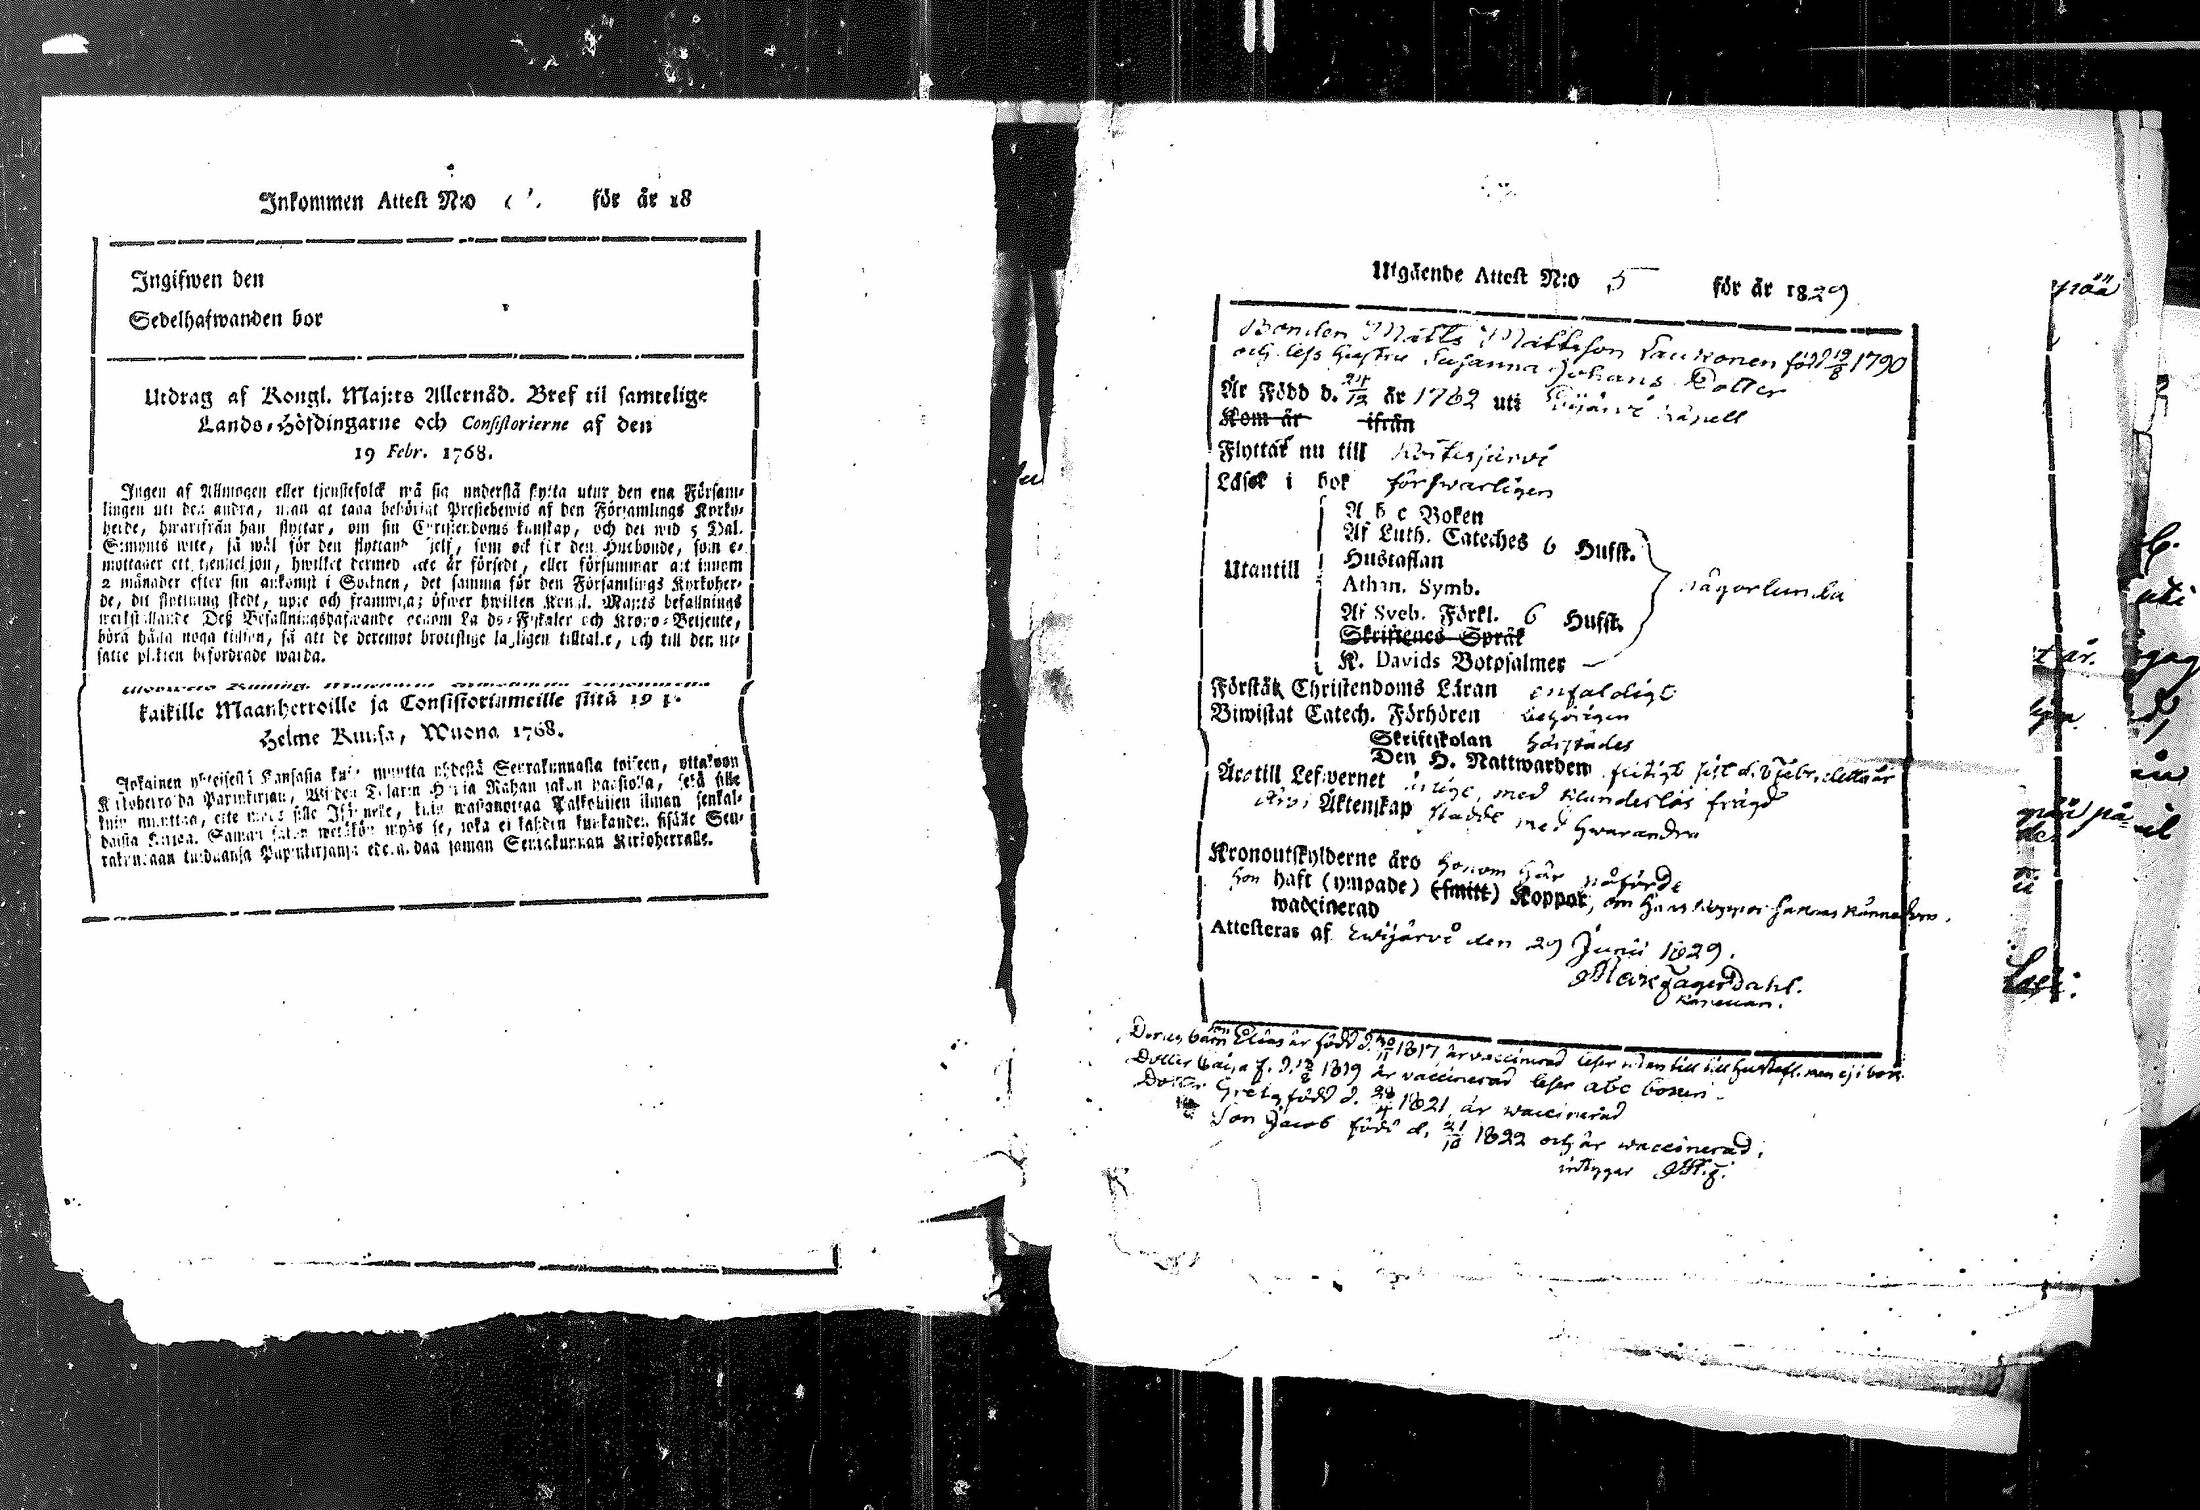 Inkommen Attest N:o för år 18
Ingifwen den
Sedelhafwanden bor
Utdrag af Kongl. Maj:ts Allernåd. Bref til samtelige
Lands-Höfdingarne och Consistorierne af den
19 Febr. 1768.
Ingen af Allmogen eller tjenstefolck må sig understå flytta utur den ena Försam-
lingen uti den andra, utan at taga behörigt Prestebewis af den Församlings Kyrko-
herde, hwarifrån han flyttar, om sin Christendoms kunskap, och det wid 5 Dal.
S:mynts wite, så wäl för den flyttande sjelf, som ock för den Husbonde, som e-
mottager ett tjenstehjon, hwilket dermed icke är försedt, eller försummar att innom
2 månader efter sin ankomst i Socknen, det samma för den Församlings Kyrkoher-
de, dit flyttning skedt, upte och framwisa; öfwer hwilken Kongl. Maj:ts befallnings
werkställande Deß Befallningshafwande genom Lands-Fiskaler och Krono-Betjente,
böra hålla noga tillsyn, så att de deremot brottslige lagligen tilltalte, och till den ut-
satte plikten befordrade warda.
kaikille Maanherroille ja Consistoriumeille siitä 19 p.
Helme Kuusa, Wuona 1768.
Jokainen yhteisestä Kansasta kuin muutta yhdestä Seurakunnasta toiseen, ottakoon
Kirkoherralda Papinkirjan, Wijden Talarin Hopia Rahan sakon haastolla, sekä sille
kuin muuttaa, ette myös sille Isännelle, kuin wastanottaa Palkollisen ilman senkal-
daista kirjaa. Saman sakon wetäkön myös se, joka ei kahden kuukauden sisälle Seu-
rakundaan tulduansa Papinkirjansa edeskandaa saman Seurakunnan Kirkoherralle.
Utgående Attest N:o 5 för år 1829
Bonden Matts Mattsson Laukonen född 19/8 1790
och dess Hustru Susanna Johans Dotter
Är Född d. 24/12 år 1782 uti Ewijärvi Kapell
Kom år ifrån
Flyttar nu till Koitejärvi
Läser i bok förswarligen
A b c Boken
Af Luth. Cateches 6 Hufst.
Hustaflan
Utantill någorlunda
Athan. Symb.
Af Sveb. Förkl. 6 Hufst.
Skriftenes Språk
K. Davids Botpsalmer
Förstår Christendoms Läran enfaldigt
Biwistat Catech. Förhören behörigen
Skriftskolan härstädes
Den H. Nattwarden flitigt sist d. 8 Febr. detta år
Äro till Lefwernet ärlige, med klanderlös frägd
Äro i Äktenskap stadde med hwarandra
Kronoutskylderne äro honom här påförde
hon haft (ympade) (smitt) Koppor, om hans koppor saknas kännedom.
waccinerad
Attesteras af Ewijärvi den 29 Junii 1829.
Fagerdahl.
Kapellan.
Deras barn son Elias är född d. 30/11 1817 är vaccinerad läser utantill till hustafl. men ej i bok
Dotter Caisa f. d. 1819 är vaccinerad läser abc boken
Dotter Greta född d. 28/4 1821 är waccinerad
Son Jacob född d. 21/10 1822 och är waccinerad,
intygar